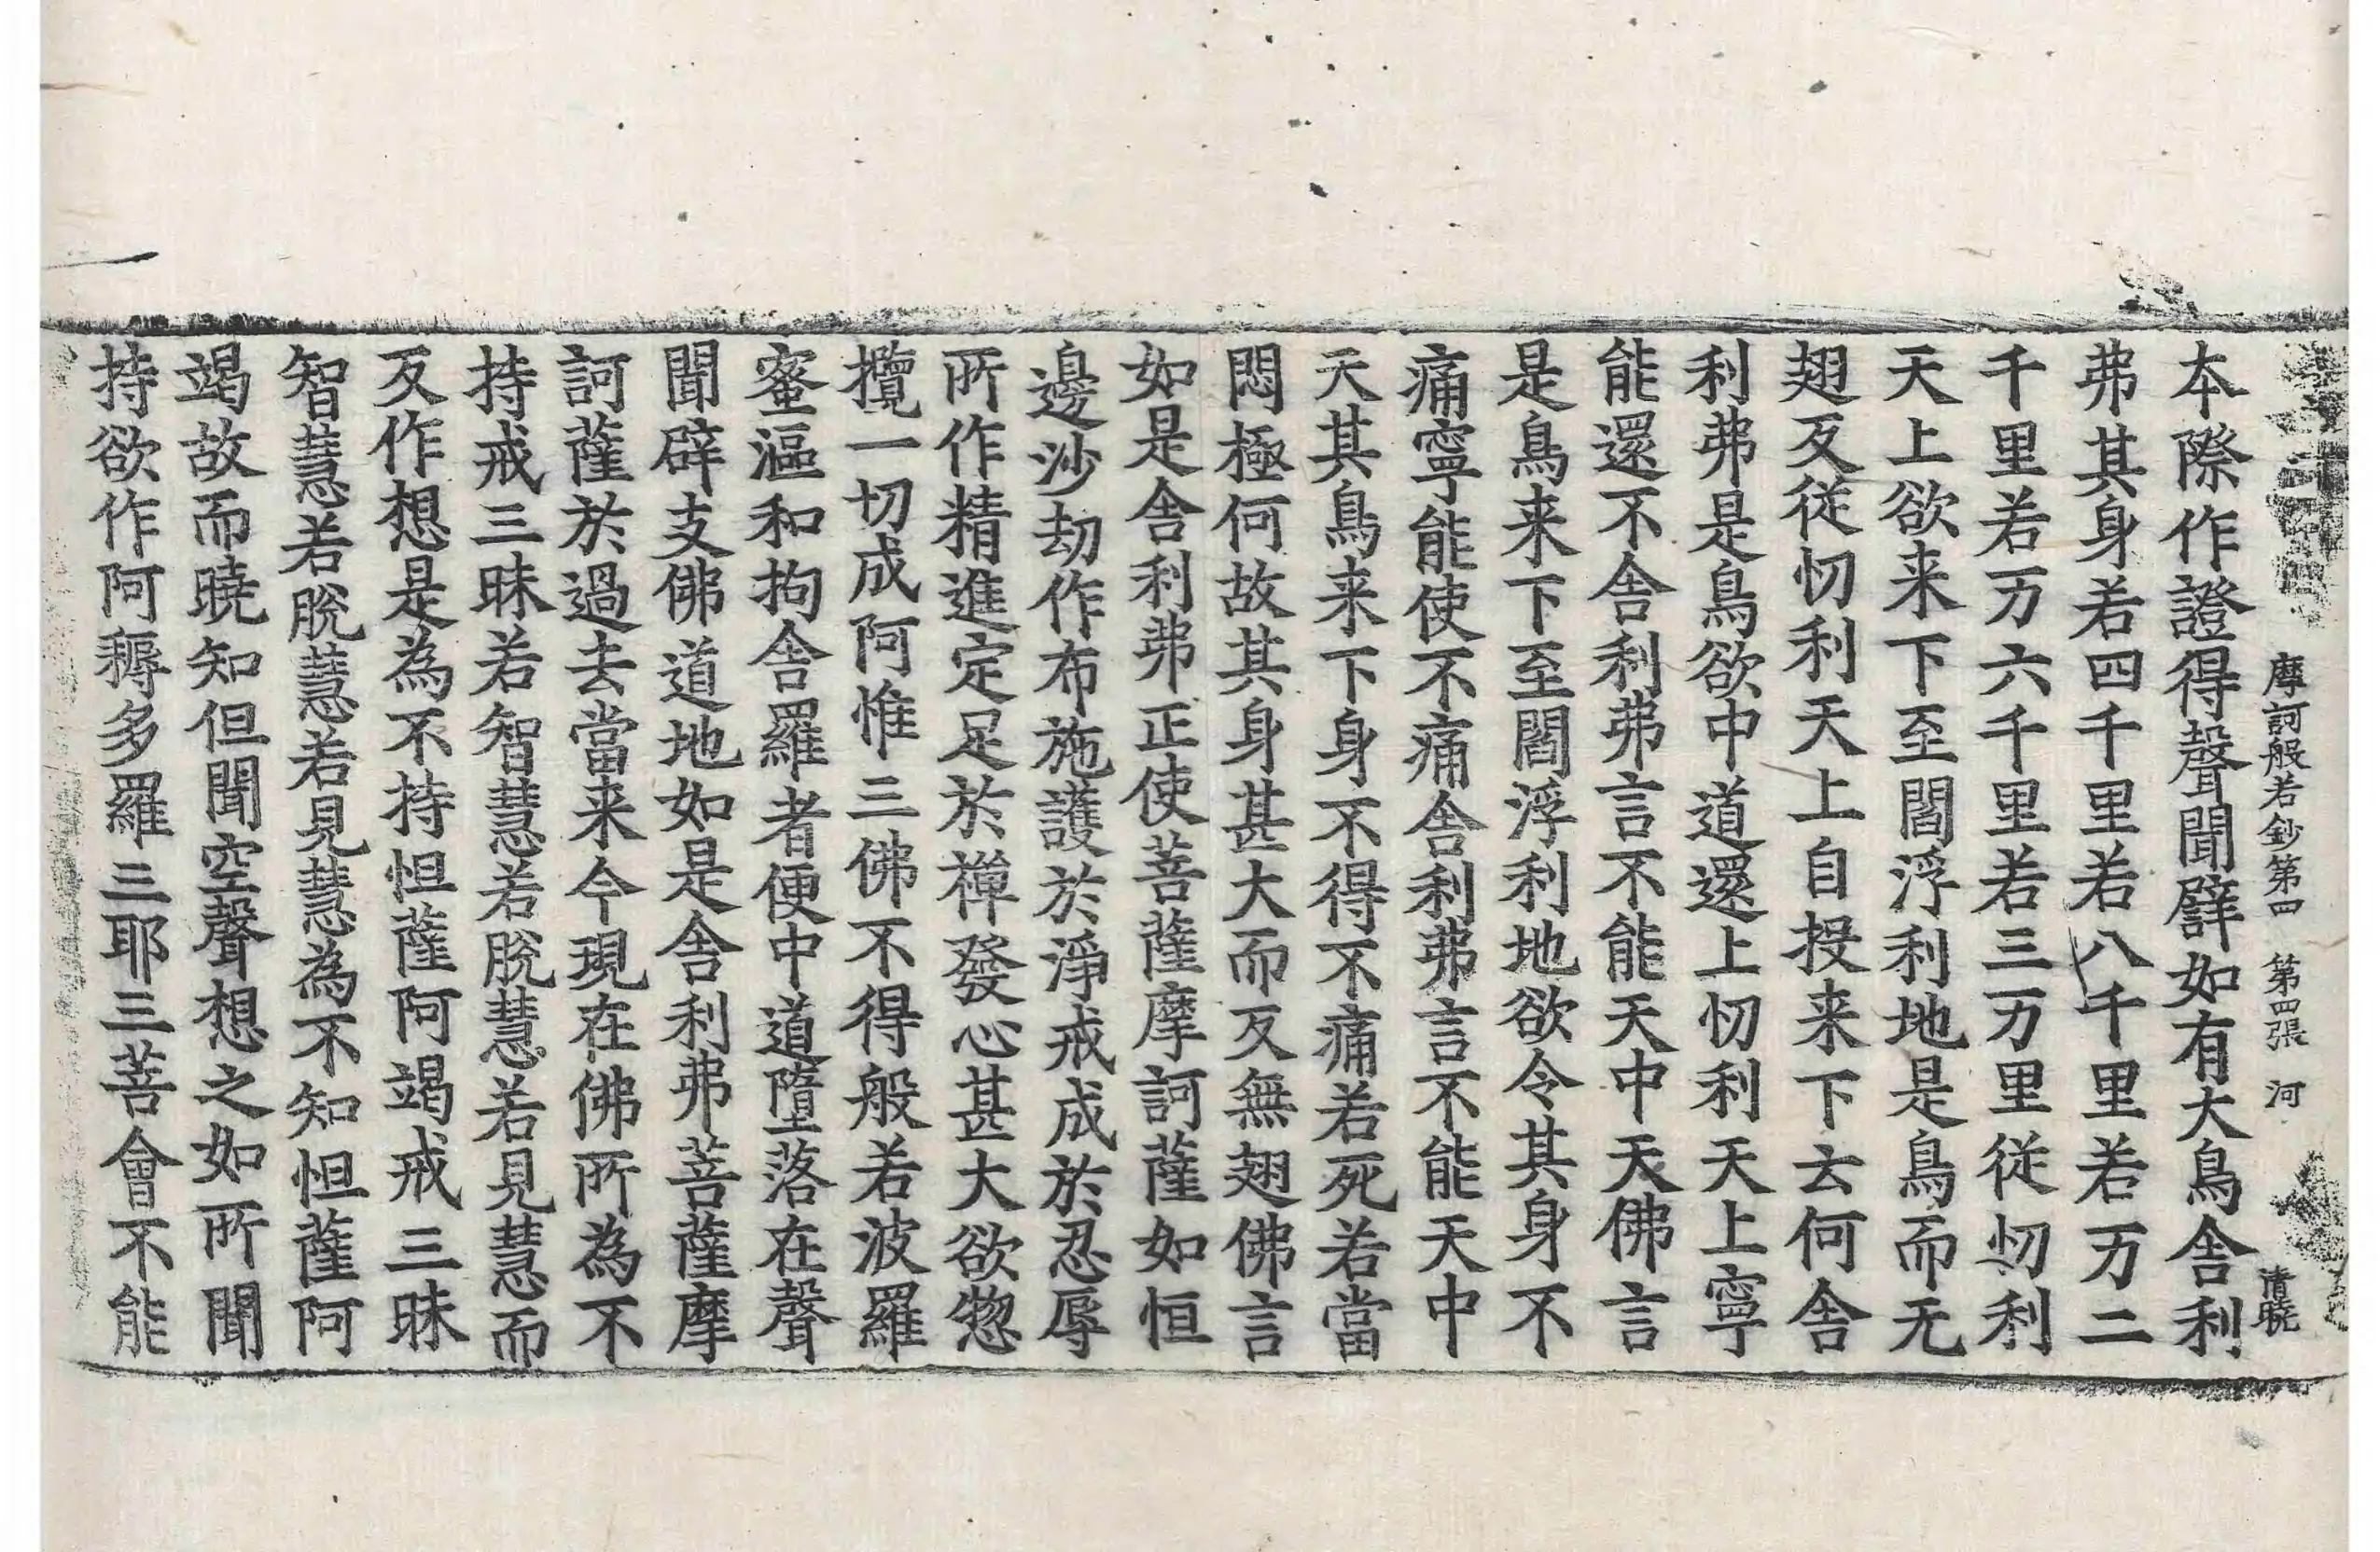 摩訶般若鈔第四 第四張 河 清曉
本際作證得聲聞辟如有大鳥舍利
弗其身若四千里若八千里若万二
千里若万六千里若三万里從忉利
天上欲来下至閻浮利地是鳥而无
翅反從忉利天上自投来下云何舍
利弗是鳥欲中道還上忉利天上寧
能還不舍利弗言不能天中天佛言
是鳥来下至閻浮利地欲令其身不
痛寧能使不痛舍利弗言不能天中
天其鳥来下身不得不痛若死若當
悶極何故其身甚大而反無翅佛言
如是舍利弗正使菩薩摩訶薩如恒
邊沙劫作布施護於淨戒成於忍辱
所作精進定足於禪發心甚大欲惣
攬一切成阿惟三佛不得般若波羅
蜜漚和拘舍羅者便中道墮落在聲
聞辟支佛道地如是舍利弗菩薩摩
訶薩於過去當来今現在佛所為不
持戒三昧若智慧若脫慧若見慧而
反作想是為不持怛薩阿竭戒三昧
智慧若脫慧若見慧為不知怛薩阿
竭故而曉知但聞空聲想之如所聞
持欲作阿耨多羅三耶三菩會不能